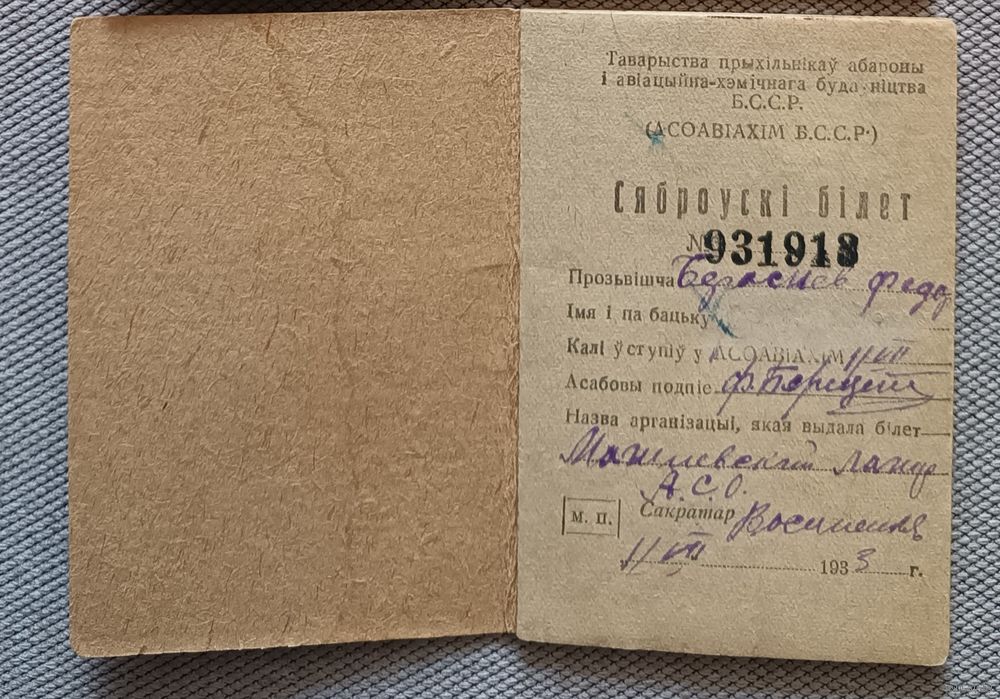 Таварыства прыхільнікаў абароны
і авіацыйна-хэмічнага будаўніцтва
Б.С.С.Р.
(АСОАВІАХІМ Б.С.С.Р.)
Сяброускі білет
№ 931918
Прозьвішча
Імя і па бацьку
Калі ўступіў у АСОАВІАХІМ 11/VII
Асабовы подпіс
Назва арганізацыі, якая выдала білет
А.С.О.
м. п. Сакратар
11/VII 1933 г.